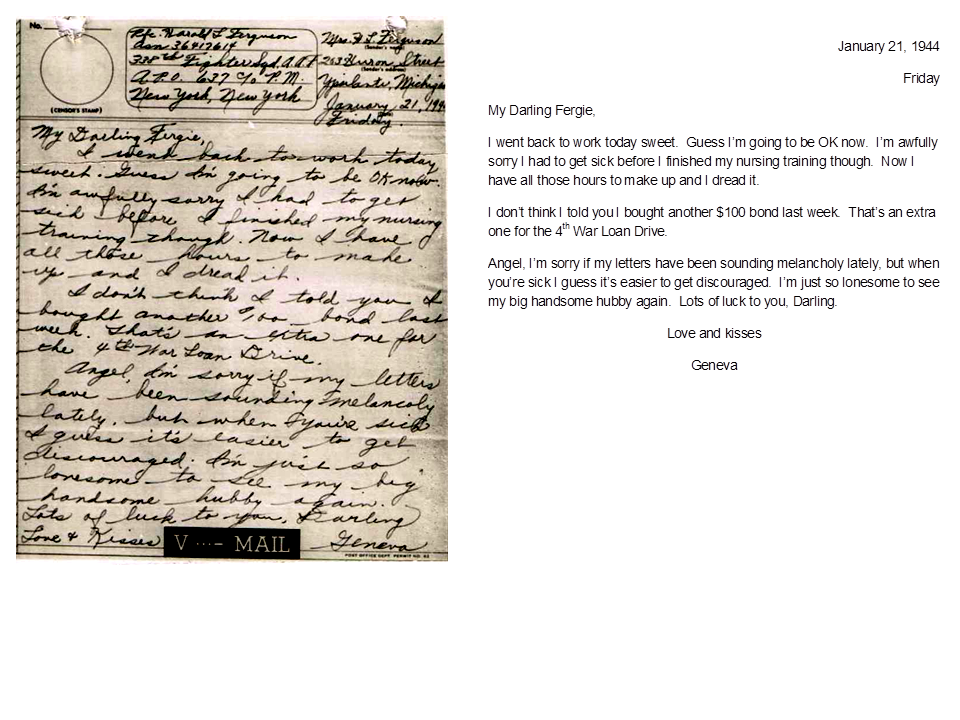 No.
(CENSOR'S STAMP)
Pfc. Harold L Ferguson
Asn 36417614
335th Fighter Sqd. A.A.F
A.P.O. 637 c/o P.M.
New York, New York
Mrs. H L Ferguson
(Sender's name)
263 Huron Street
(Sender's address)
Ypsilanti, Michigan
January, 21, 194
Friday.
My Darling Fergie,
I went back to work today
sweet. Guess I'm going to be OK now.
I'm awfully sorry I had to get
sick before I finished my nursing
training though. Now I have
all those hours to make
up and I dread it.
I don't think I told you I
bought another $100 bond last
week. That's an extra one for
the 4th War Loan Drive.
Angel, I'm sorry if my letters
have been sounding melancoly
lately, but when you're sick
I guess it's easier to get
discouraged. I'm just so
lonesome to see my big
handsome hubby again.
Lots of luck to you, Darling
Love & Kisses
V ...- MAIL
Geneva
POST OFFICE DEPT. PERMIT NO.
January 21, 1944
Friday
My Darling Fergie,
I went back to work today sweet. Guess I'm going to be OK now. I'm awfully
sorry I had to get sick before I finished my nursing training though. Now I
have all those hours to make up and I dread it.
I don't think I told you I bought another $100 bond last week. That's an extra
one for the 4th War Loan Drive.
Angel, I'm sorry if my letters have been sounding melancholy lately, but when
you're sick I guess it's easier to get discouraged. I'm just so lonesome to see
my big handsome hubby again. Lots of luck to you, Darling.
Love and kisses
Geneva